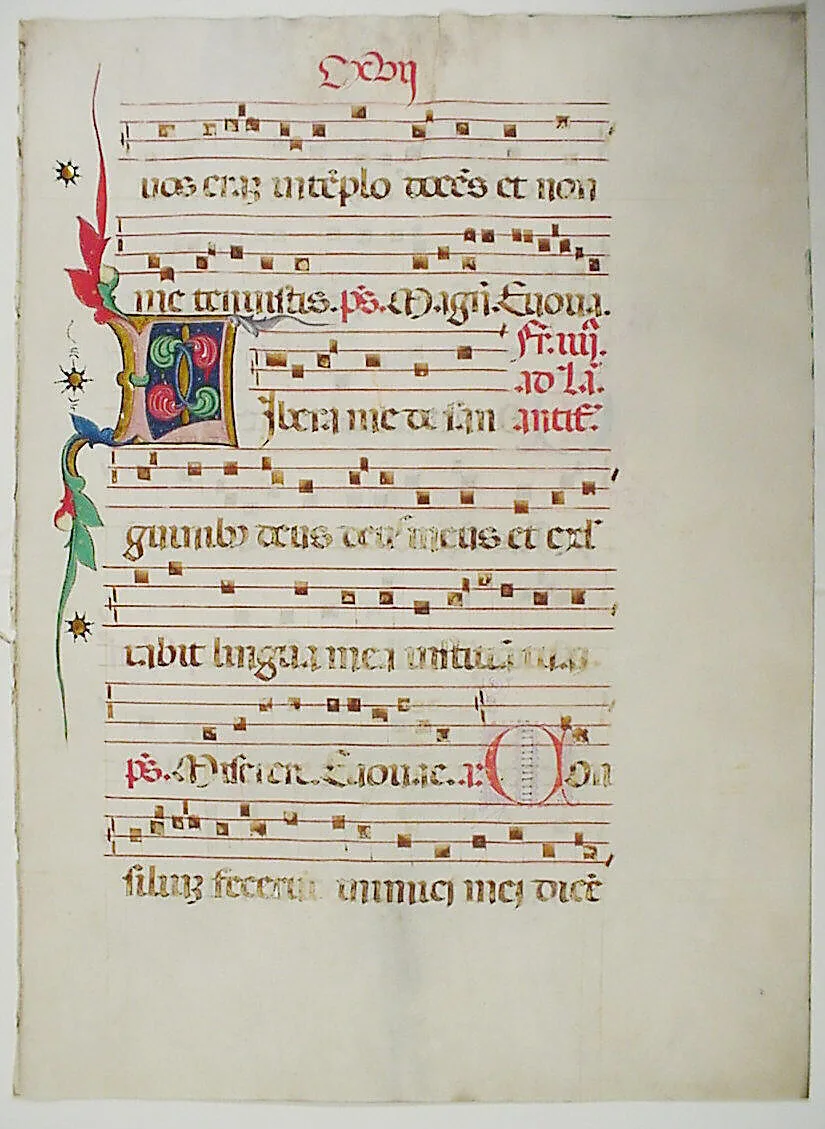 Cxvij
uos eraʒ in tēplo docēs et non
me tenuistis. p̄s. Magn̄. Euoua.
fr. iiij.
ad l̄a.
Libera me de san antif̄.
guinibꝰ deus deuſ meus et exl
tabit lingua mea iustitiā tuaʒ.
p̄s. Miserere. Euouae. a. Con
siliuʒ fecerūt inimici mei dicē